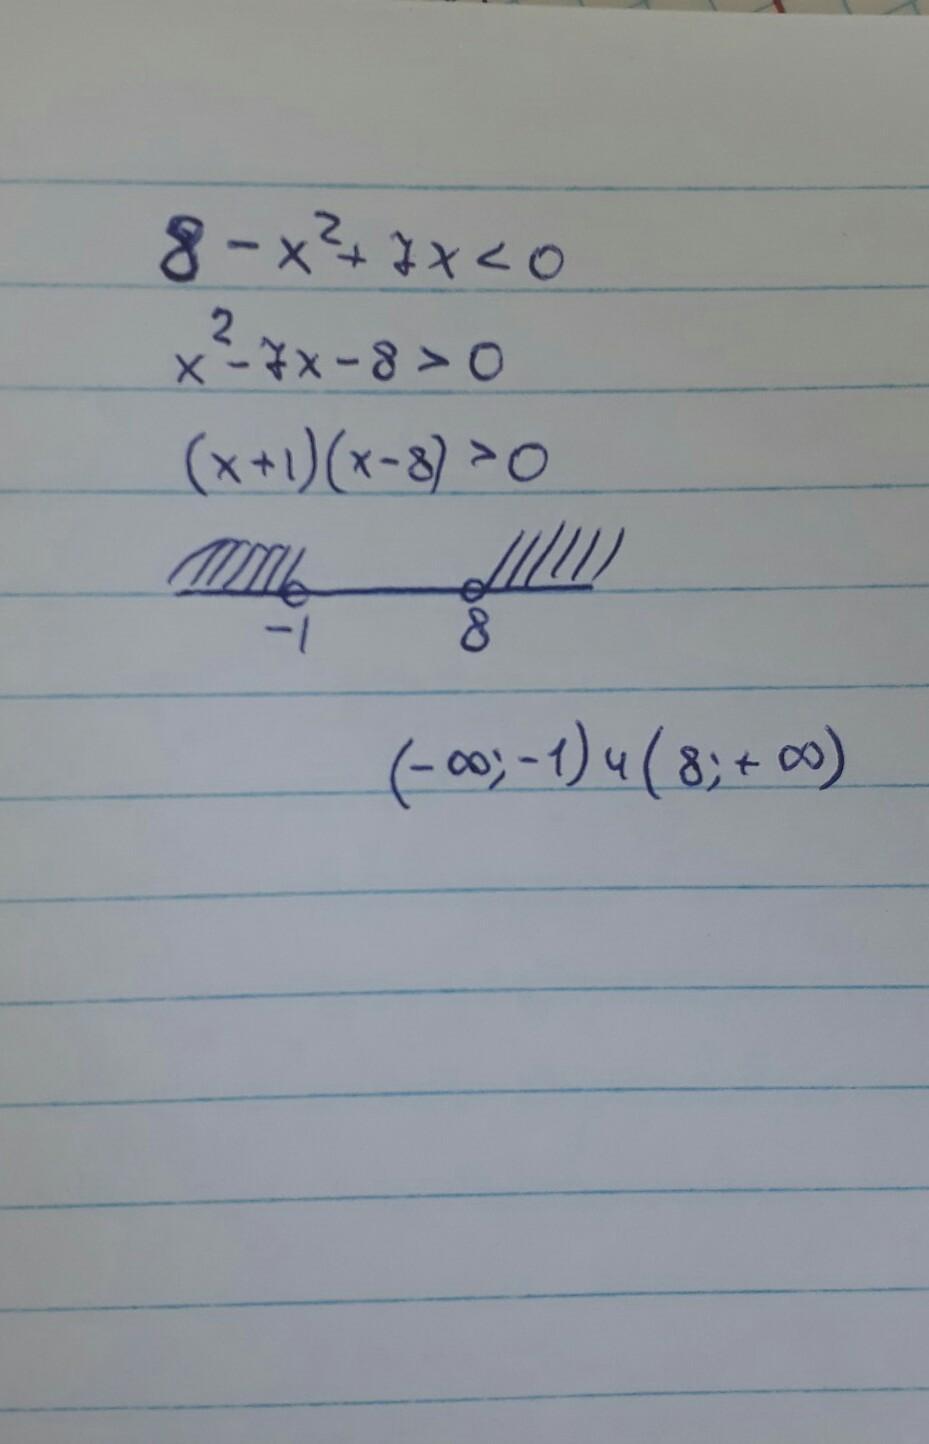 8 - x² + 7x < 0
x² - 7x - 8 > 0
(x+1)(x-8) > 0
-1 8
(-∞; -1) ∪ (8; +∞)